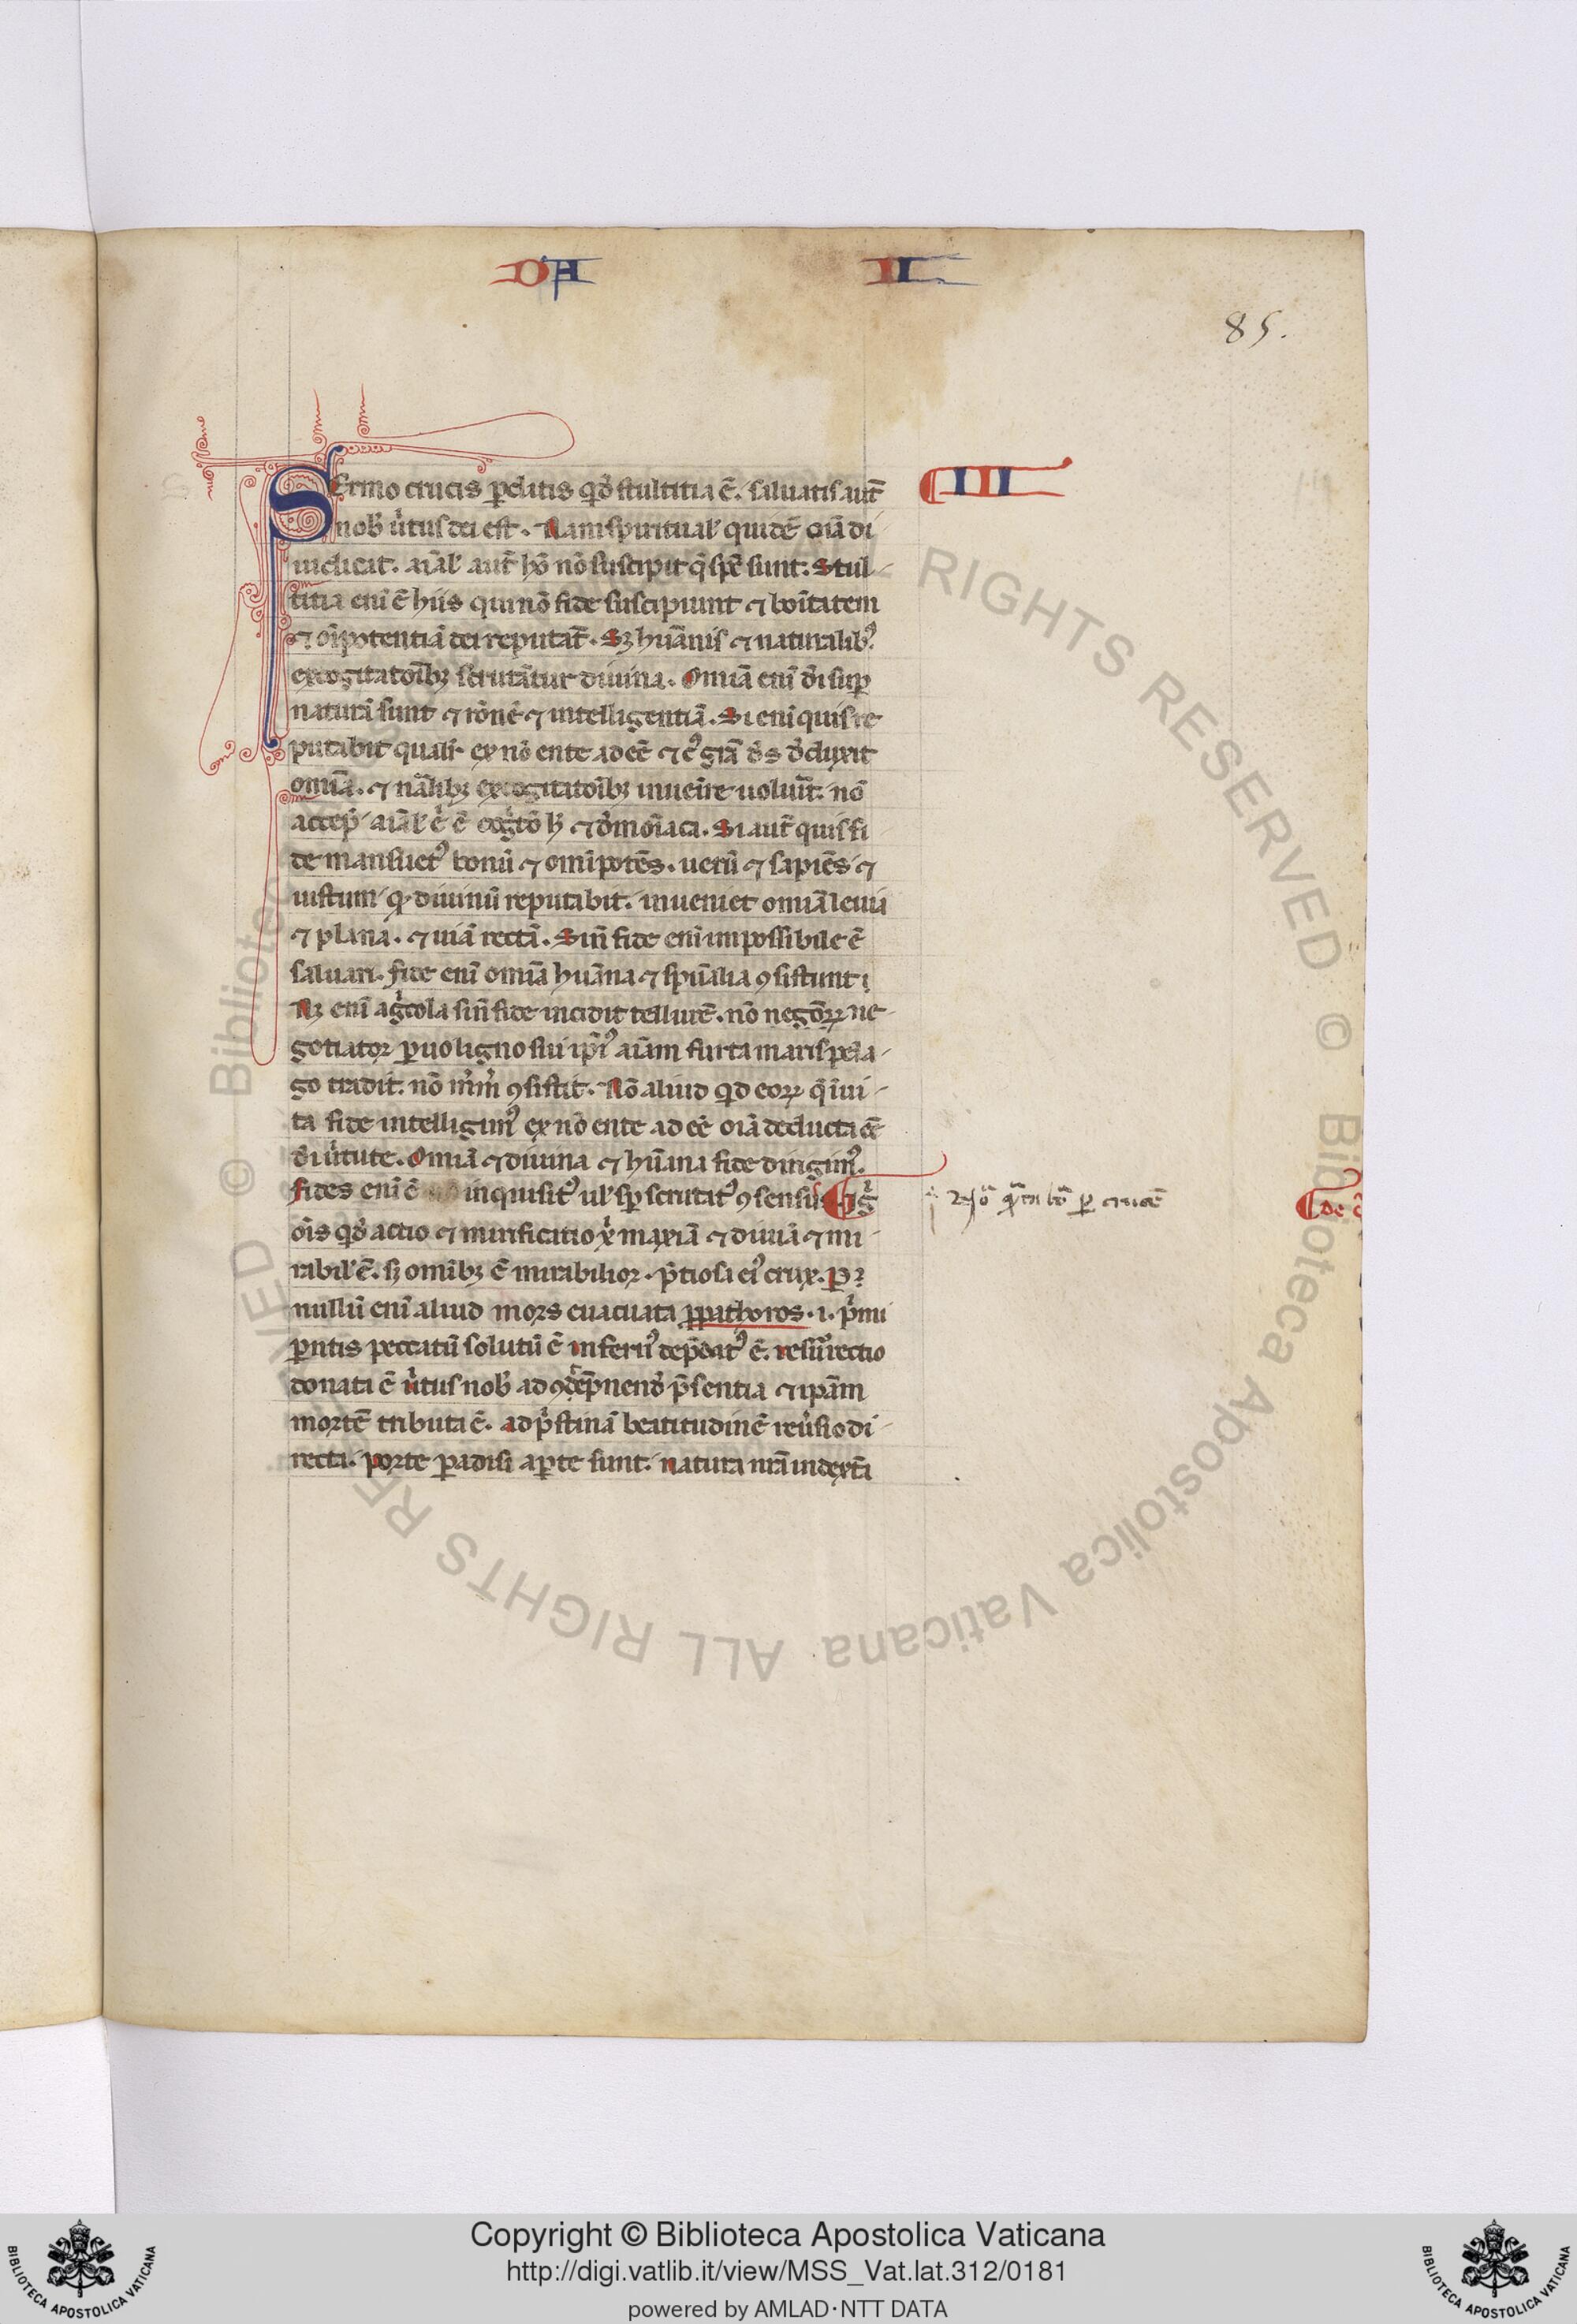 DA II
85.
Sermo crucis ꝑditis qd̓ stultitia ē. saluatis aut̄
nob̓ ůtus dei est. Nam spiritual̓ quidē oīa di
iudicat. aīal̓ aut̄ hō nō suscipit q̄ spc̄ sunt. Stul
titia enī ē hiis qui nō fide suscipiunt ⁊ boītatem
⁊ oīpotentiā dei reputāt. Sꝫ huānis ⁊ naturalibꝰ
excogitatōibꝫ scrutātur diuina. Omīa enī d̓i suꝑ
naturā sunt ⁊ rōnē ⁊ intelligentiā. Si enī quis re
putabit qualit̓ ex nō ente ad eē ⁊ cꝰ grā d̓s d̓duxit
omīa. ⁊ nālibꝫ excogitatōibꝫ inueīre uoluīt. nō
aīal̓ ⁊ d̓moīaca. Si aut̄ quis fi
de mansuetꝰ bonū ⁊ omīpotēs. uerū ⁊ sapiēs ⁊
iustum qd̓ diuinū reputabit. inueniet omīa leuia
⁊ plana. ⁊ uiā rectā. Sin̄ fide enī impossibile ē
saluari. fide enī omīa huāna ⁊ spūalia ꝯsistunt
Nꝫ enī ag̓cola sin̄ fide incidit tellurē. nō negōꝝ ne
gotiator ꝑuo ligno sui ip̄iꝰ aīam furta maris pela
go tradit. nō ꝯsistit. Nō aliud qd eoꝝ q̄ ī ui
ta fide intelligimꝰ ex nō ente ad eē oīa deducta eē
d̓i ůtute. Omīa ⁊ diuina ⁊ hūana fide dirigimꝰ.
fides enī ē inquisitꝰ ul̓ suꝑscrutatꝰ ꝯsensus ¶ Ig̓
oīs qd̓ actio ⁊ mirificatio xī maxīa ⁊ diuīa ⁊ mi
rabil̓ ē. sꝫ omībꝫ ē mirabilior. p̄tiosa eiꝰ crux. Pꝛ
nullū enī aliud mors euacuata ꝓpathoros .i. p̓mi
ꝑntis peccatū solutū ē infernꝰ dep̄datꝰ ē. resurrectio
donata ē ůtus nob̓ ad ꝯdēpnend̓ p̄sentia ⁊ ip̄am
mortē tributa ē. ad p̓stinā beatitudinē reůsio di
recta. porte ꝑadisi aꝑte sunt. natura nrā in dext̄a
¶ III
ꝑ crucē
¶ de
Copyright © Biblioteca Apostolica Vaticana
http://digi.vatlib.it/view/MSS_Vat.lat.312/0181
powered by AMLAD·NTT DATA
BIBLIOTECA APOSTOLICA VATICANA
BIBLIOTECA APOSTOLICA VATICANA
© Biblioteca Apostolica Vaticana ALL RIGHTS RESERVED